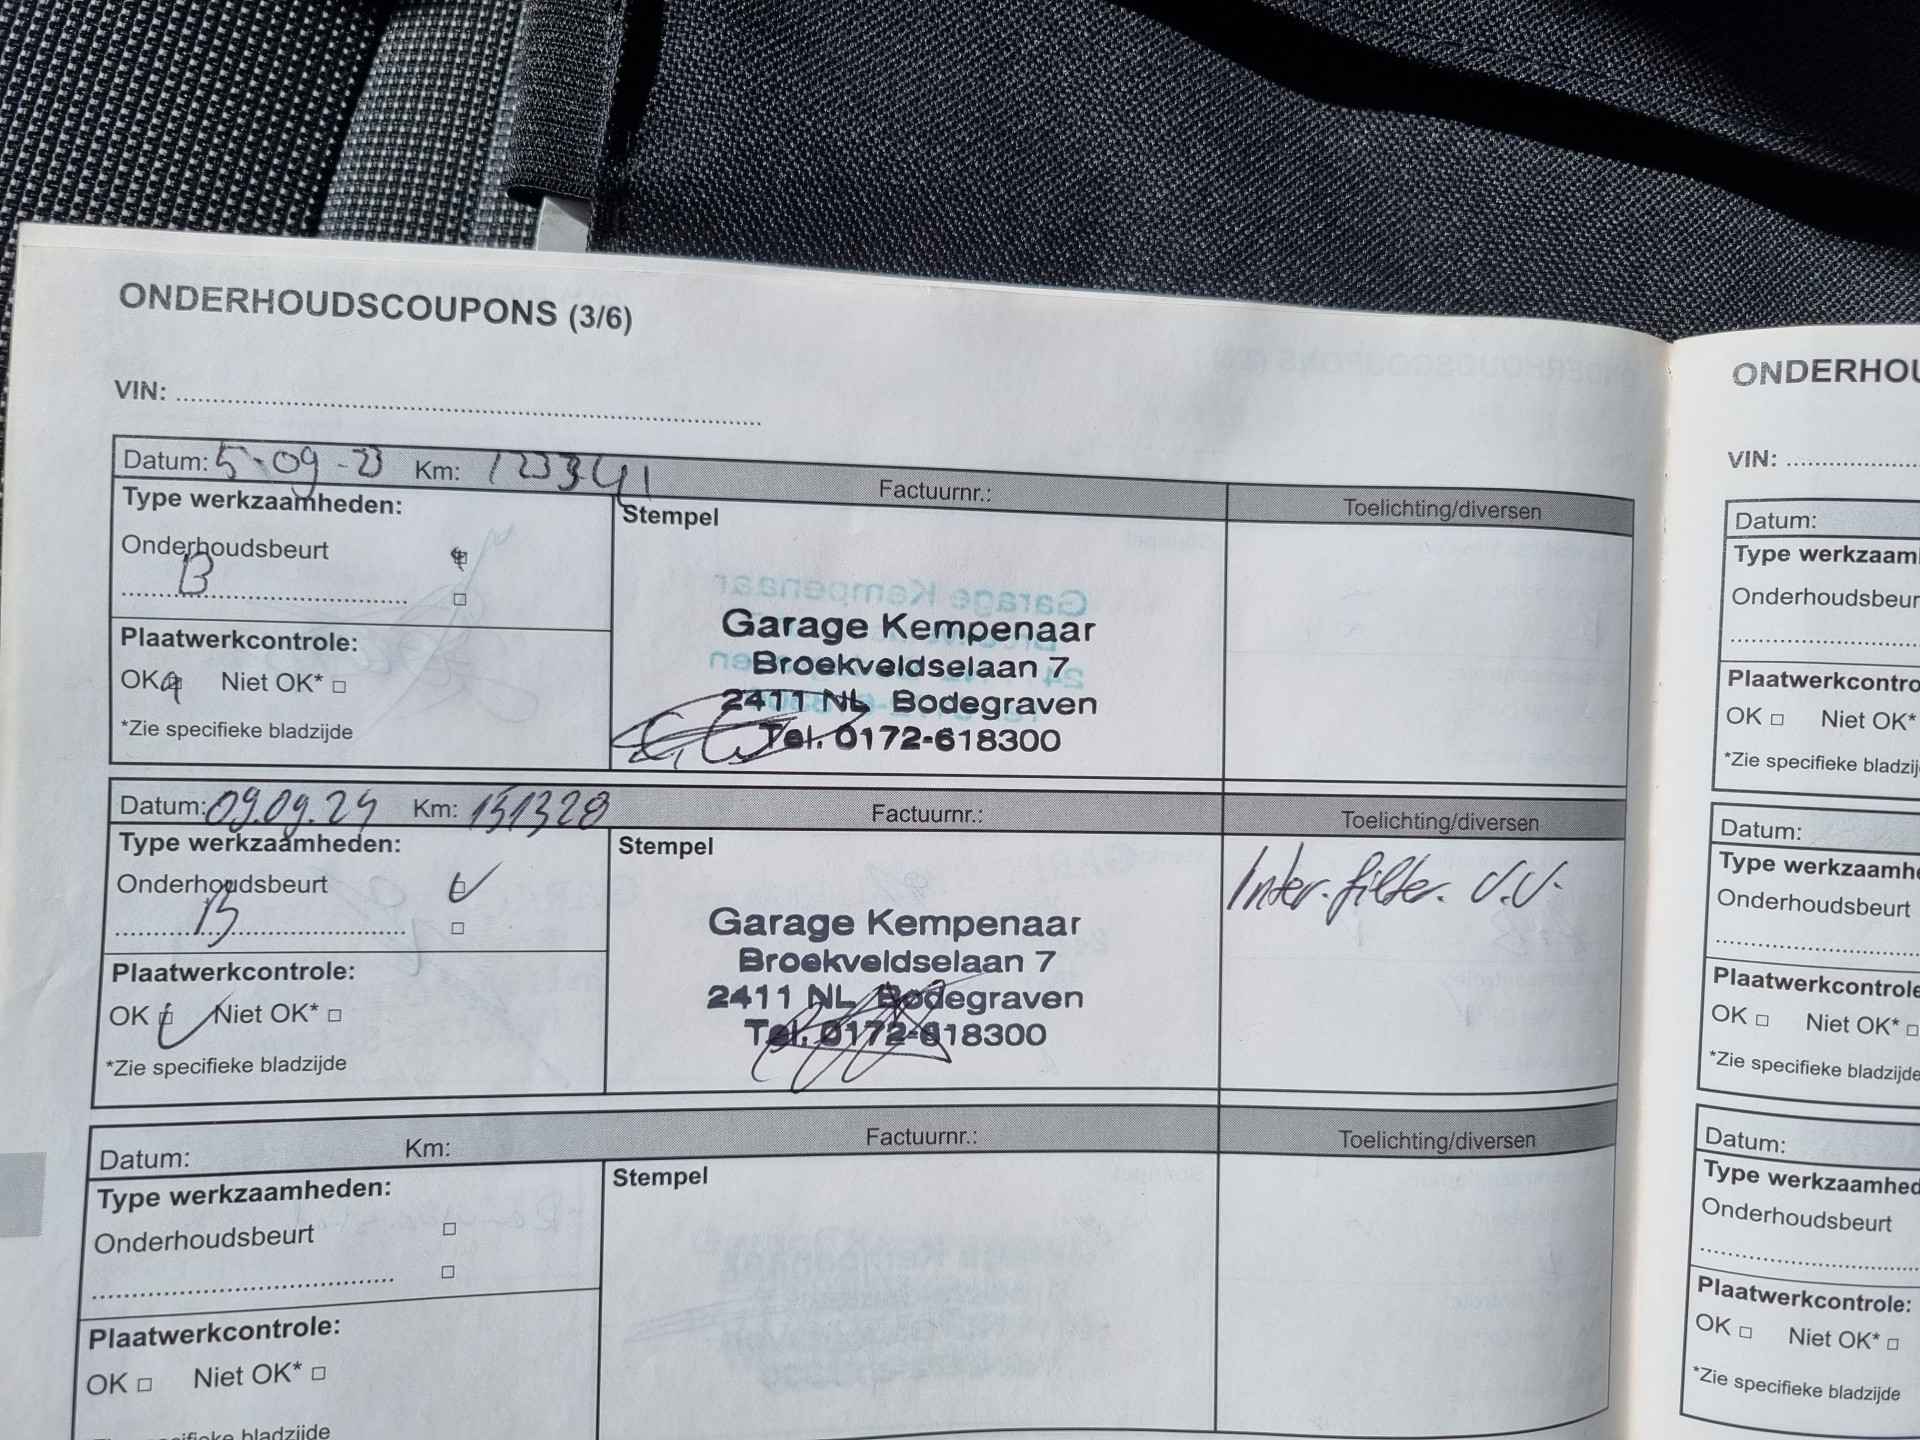 ONDERHOUDSCOUPONS (3/6)
VIN:
Datum: 5-09-23 Km: 123341 Factuurnr.: Toelichting/diversen
Type werkzaamheden:
Stempel
Onderhoudsbeurt
B
Plaatwerkcontrole:
OK Niet OK*
*Zie specifieke bladzijde
Garage Kempenaar
Broekveldselaan 7
2411 NL Bodegraven
Tel. 0172-618300
Datum: 09.09.24 Km: 131328 Factuurnr.: Toelichting/diversen
Type werkzaamheden:
Stempel
Onderhoudsbeurt
B
Plaatwerkcontrole:
OK Niet OK*
*Zie specifieke bladzijde
Garage Kempenaar
Broekveldselaan 7
2411 NL Bodegraven
Tel. 0172-618300
Inter.filter. V.V.
Datum: Km: Factuurnr.: Toelichting/diversen
Type werkzaamheden:
Stempel
Onderhoudsbeurt
Plaatwerkcontrole:
OK Niet OK*
bladzijde
ONDERHOU
VIN:
Datum:
Type werkzaam
Onderhoudsbeur
Plaatwerkcontro
OK Niet OK*
*Zie specifieke bladzij
Datum:
Type werkzaamhe
Onderhoudsbeurt
Plaatwerkcontrole
OK Niet OK*
*Zie specifieke bladzijde
Datum:
Type werkzaamhed
Onderhoudsbeurt
Plaatwerkcontrole:
OK Niet OK*
*Zie specifieke bladzijde